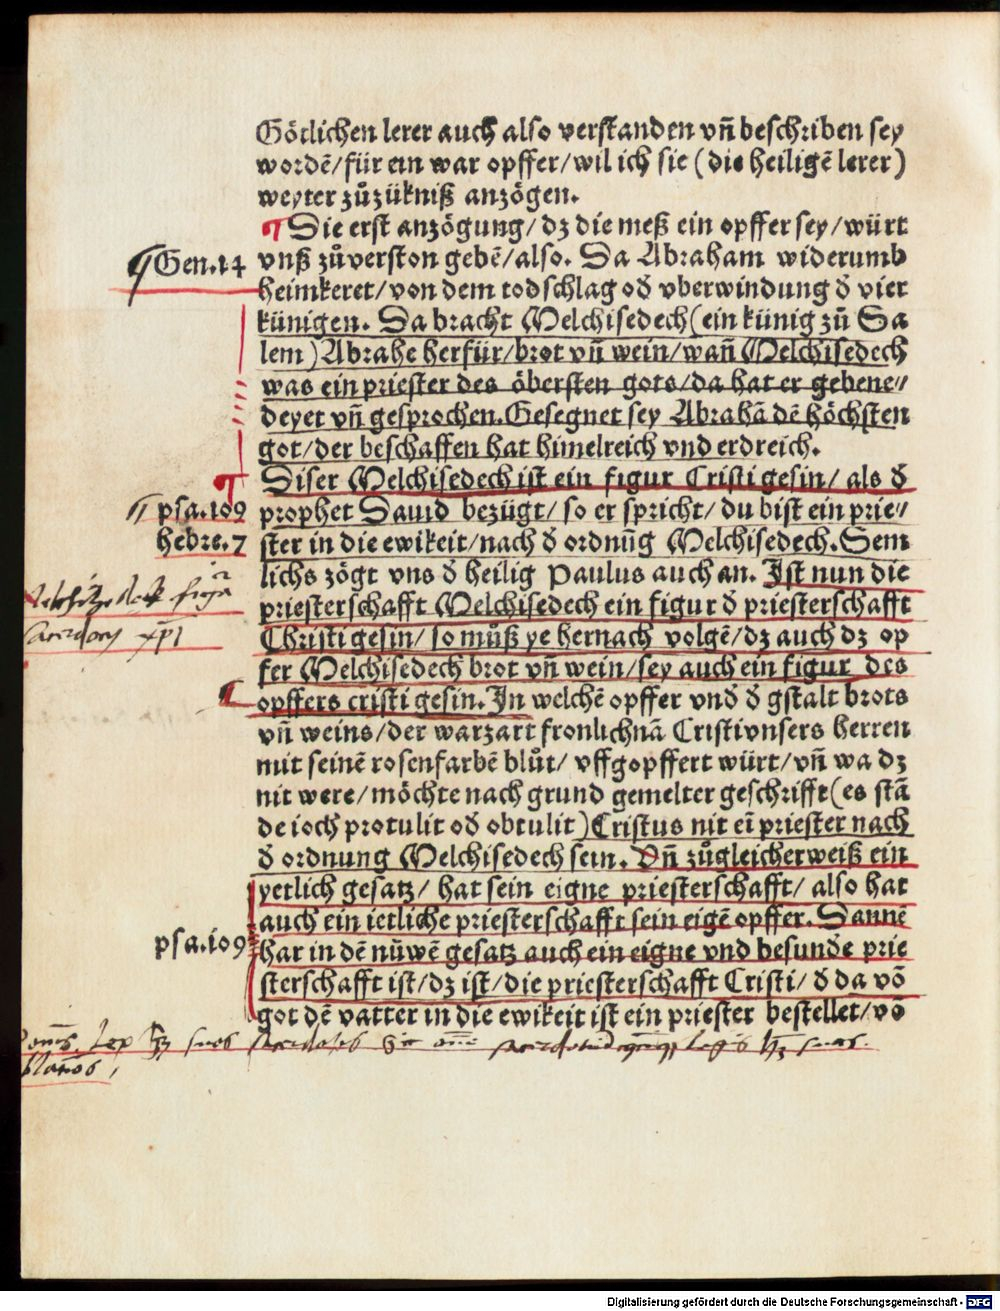 Götlichen lerer auch also verstanden vñ beschriben sey
wordē/für ein war opffer/wil ich sie (die heiligē lerer)
weyter zůzükniß anzögen.
¶ Die erst anzögung/ dz die meß ein opffer sey/würt
¶ Gen.14
vnß zůverston gebē/also. Da Abraham widerumb
heimkeret/von dem todschlag oð vberwindung ð vier
künigen. Da bracht Melchisedech(ein künig zů Sa
lem)Abrahe herfür/brot vñ wein/wañ Melchisedech
was ein priester des öbersten gots/da hat er gebene//
deyet vñ gesprochen.Gesegnet sey Abrahā dē höchsten
got/der beschaffen hat himelreich vnd erdreich.
Diser Melchisedech ist ein figur Cristi gesin/ als ð
¶ psa.109
prophet Dauid bezügt/ so er spricht/du bist ein prie//
hebre.7
ster in die ewikeit/nach ð ordnūg Melchisedech.Sem
lichs zögt vns ð heilig Paulus auch an. Ist nun die
priesterschafft Melchisedech ein figur ð priesterschafft
Christi gesin/so můß ye hernach volgē/dz auch dz op
fer Melchisedech brot vñ wein/sey auch ein figur des
¶
opffers cristi gesin.In welchē opffer vnð ð gstalt brots
vñ weins/der warzart fronlichnā Cristi vnsers herren
mit seinē rosenfarbē blůt/ vffgopffert würt/vñ wa dz
nit were/möchte nach grund gemelter geschrifft(es stā
de ioch protulit oð obtulit)Cristus nit eī priester nach
ð ordnung Melchisedech sein. Vñ zůgleicherweiß ein
yetlich gesatz/ hat sein eigne priesterschafft/ also hat
auch ein ietliche priesterschafft sein eigē opffer. Dannē
psa.109
har in dē nüwē gesatz auch ein eigne vnd besunde prie
sterschafft ist/dz ist/die priesterschafft Cristi/ð da vō
got dē vatter in die ewikeit ist ein priester bestellet/vō
Digitalisierung gefördert durch die Deutsche Forschungsgemeinschaft - DFG